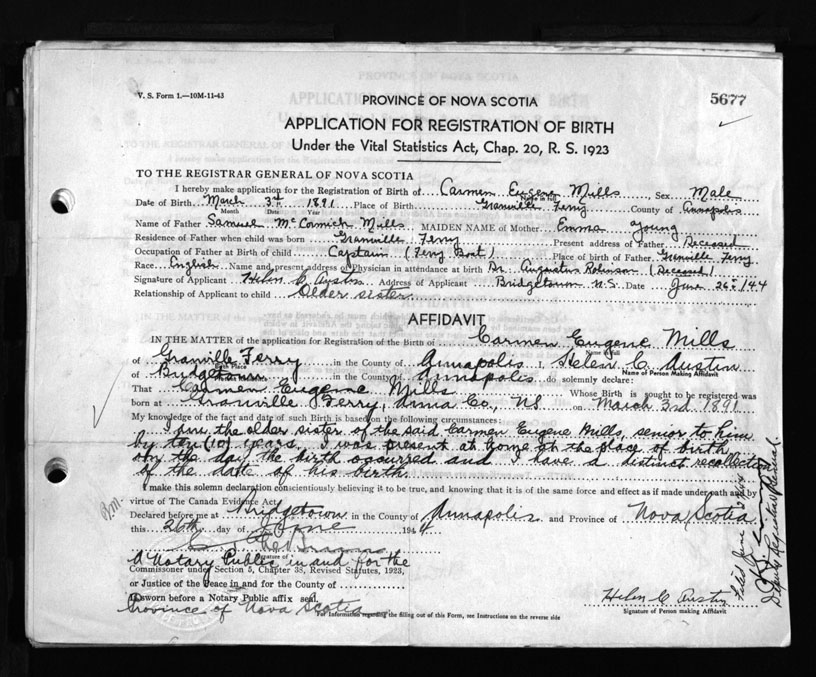 V. S. Form 1.—10M-11-43
5677
PROVINCE OF NOVA SCOTIA
APPLICATION FOR REGISTRATION OF BIRTH
Under the Vital Statistics Act, Chap. 20, R. S. 1923
TO THE REGISTRAR GENERAL OF NOVA SCOTIA
I hereby make application for the Registration of Birth of Carmen Eugene Mills Sex Male
Name in full
Date of Birth March 3rd 1891 Place of Birth Granville Ferry County of Annapolis
Month Date Year
Name of Father Samuel McCormick Mills MAIDEN NAME of Mother Emma Young
Residence of Father when child was born Granville Ferry Present address of Father Deceased
Occupation of Father at Birth of child Captain (Ferry Boat) Place of birth of Father Granville Ferry
Race English Name and present address of Physician in attendance at birth Dr. Augustus Robinson (Deceased)
Signature of Applicant Helen C Austin Address of Applicant Bridgetown N.S. Date June 26th/44
Relationship of Applicant to child Older sister
AFFIDAVIT
IN THE MATTER of the application for Registration of the Birth of Carmen Eugene Mills
Name in full
of Granville Ferry in the County of Annapolis I, Helen C Austin
Birth Place Name of Person Making Affidavit
of Bridgetown in the County of Annapolis do solemnly declare:
That Carmen Eugene Mills Whose Birth is sought to be registered was
born at Granville Ferry, Anna Co., NS on March 3rd 1891
My knowledge of the fact and date of such Birth is based on the following circumstances:
I am the older sister of the said Carmen Eugene Mills, senior to him
by ten (10) years, I was present at home at the place of birth
on the day the birth occurred and I have a distinct recollection
of the date of his birth.
I make this solemn declaration conscientiously believing it to be true, and knowing that it is of the same force and effect as if made under oath and by
virtue of The Canada Evidence Act.
Declared before me at Bridgetown in the County of Annapolis and Province of Nova Scotia
this 26th day of June 1944
Signature of
A Notary Public in and for the
Commissioner under Section 5, Chapter 38, Revised Statutes, 1923,
or Justice of the Peace in and for the County of
If sworn before a Notary Public affix seal.
Province of Nova Scotia
Helen C Austin
Signature of Person making Affidavit
For Information regarding the filling out of this Form, see Instructions on the reverse side
Deputy Registrar General